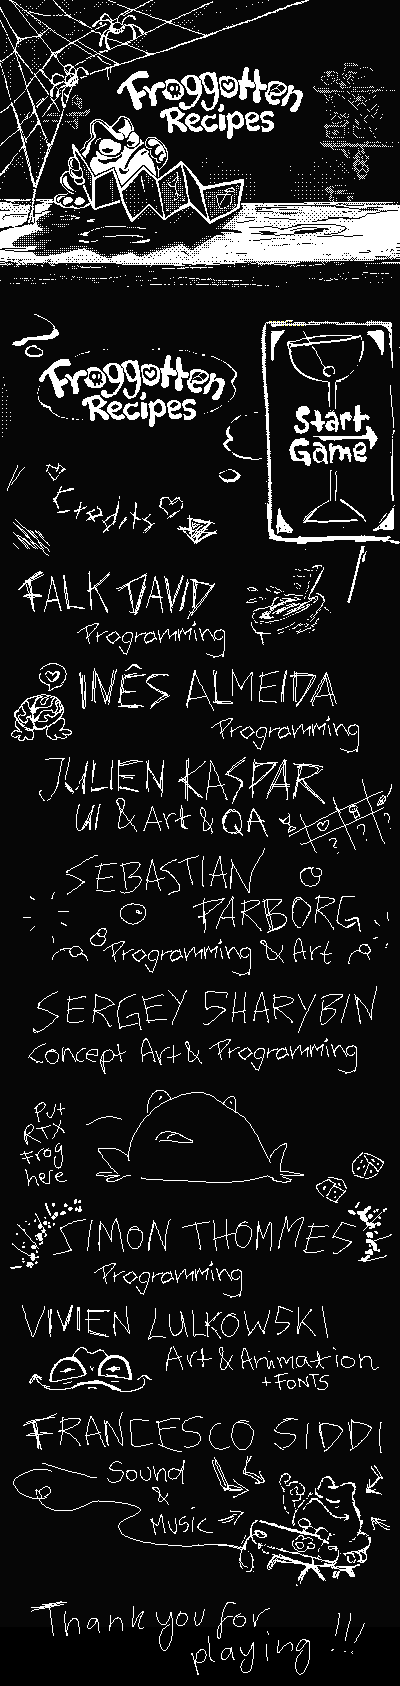 Froggotten
Recipes
Froggotten
Recipes
Start
Game
Credits
FALK DAVID
Programming
INÊS ALMEIDA
Programming
JULIEN KASPAR
UI & Art & QA
? ? ?
SEBASTIAN
PARBORG
Programming & Art
SERGEY SHARYBIN
Concept Art & Programming
Put
RTX
Frog
here
SIMON THOMMES
Programming
VIVIEN LULKOWSKI
Art & Animation
+ FONTS
FRANCESCO SIDDI
Sound
&
Music
Thank you for
playing !!!